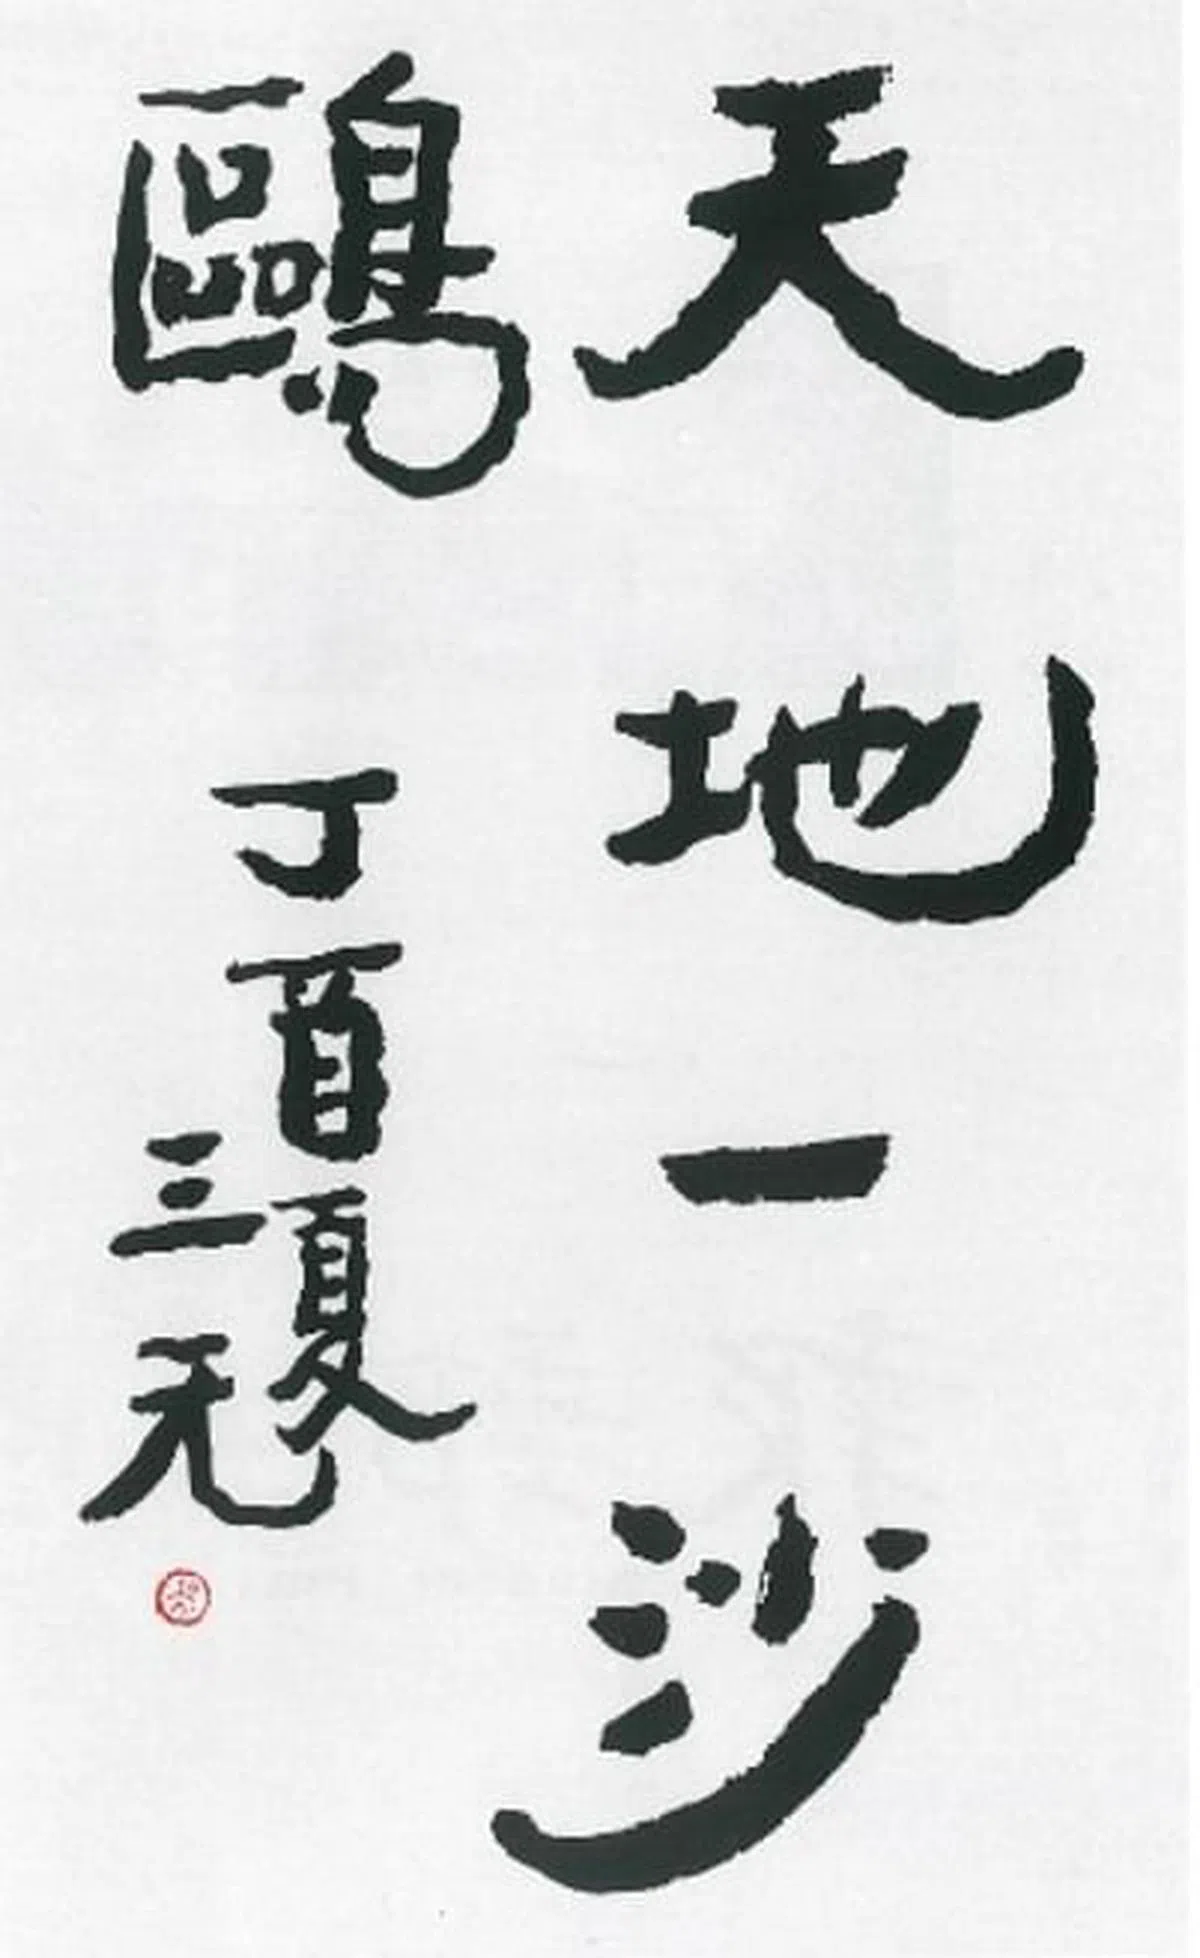 天地一沙
鷗
丁酉夏
三无